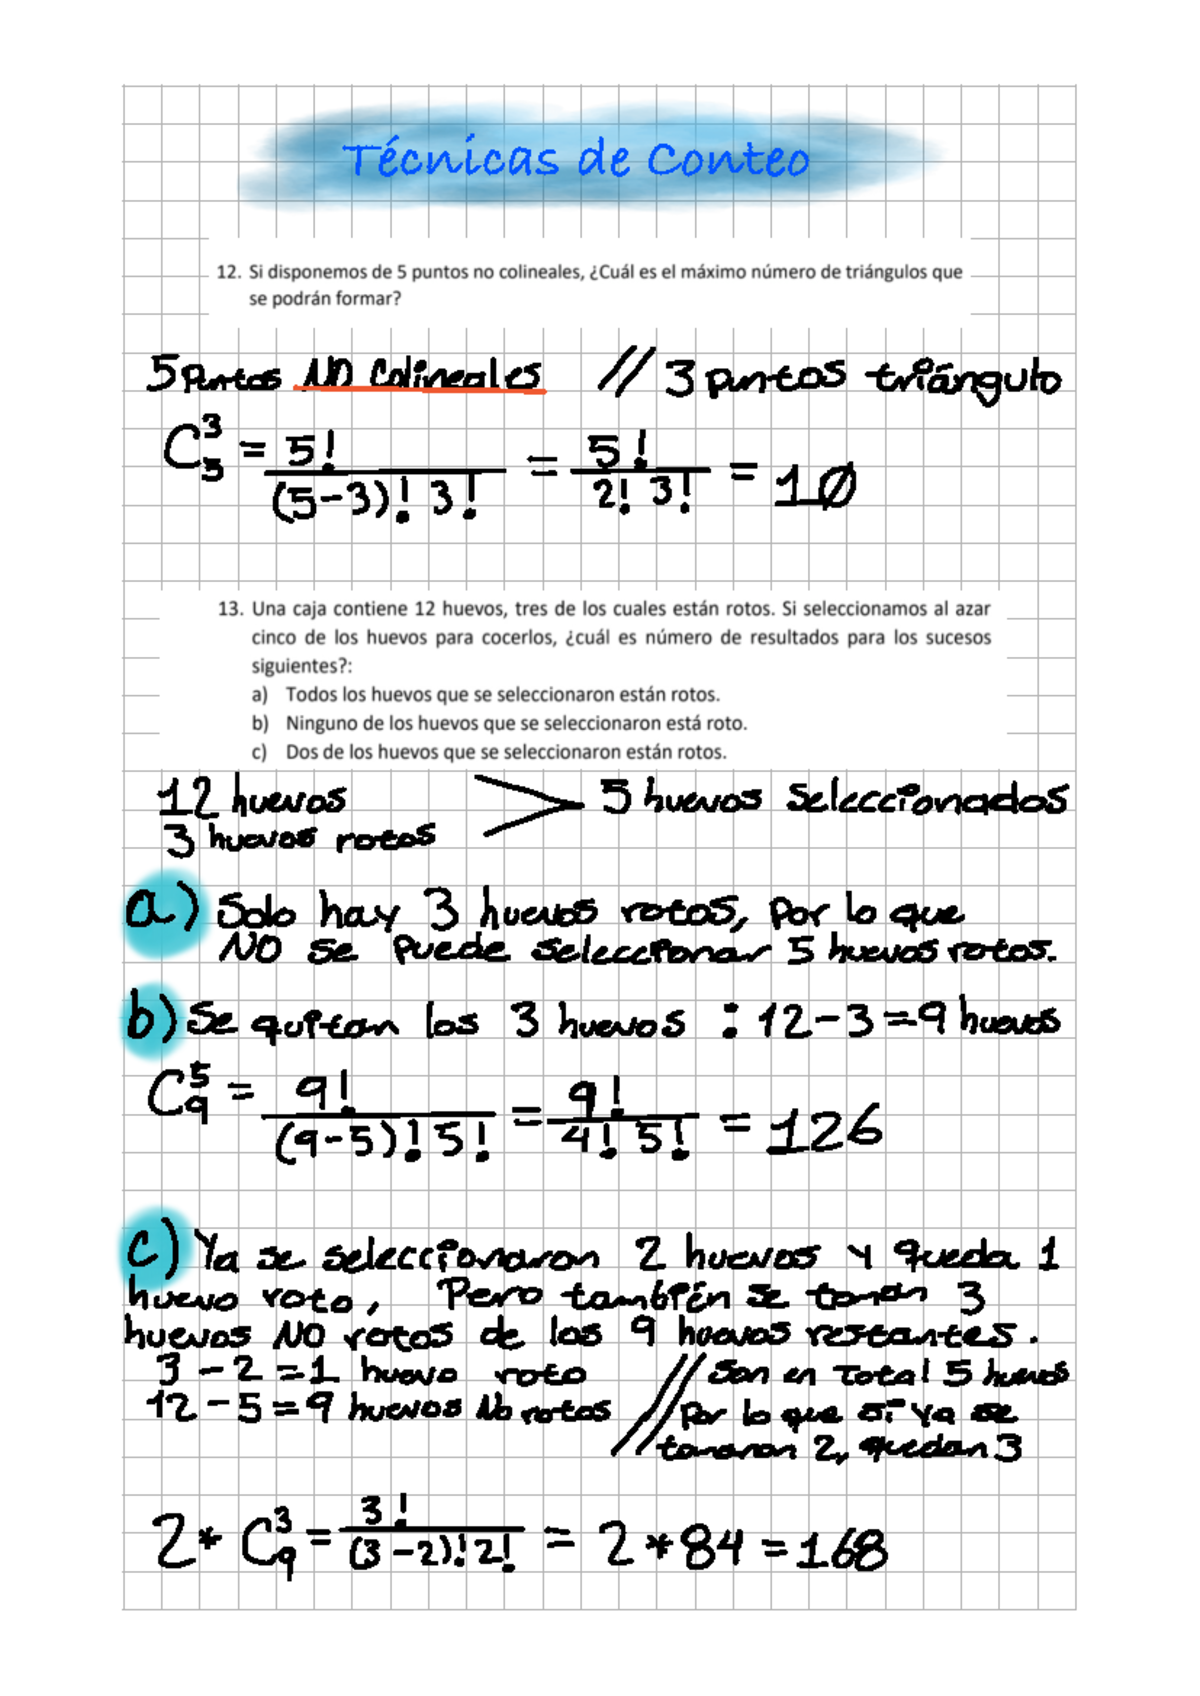 Técnicas de Conteo
12. Si disponemos de 5 puntos no colineales, ¿Cuál es el máximo número de triángulos que
se podrán formar?
5 Puntos NO Colineales // 3 puntos triángulo
C₅³ = 5! / (5-3)! 3! = 5! / 2! 3! = 10
13. Una caja contiene 12 huevos, tres de los cuales están rotos. Si seleccionamos al azar
cinco de los huevos para cocerlos, ¿cuál es número de resultados para los sucesos
siguientes?:
a) Todos los huevos que se seleccionaron están rotos.
b) Ninguno de los huevos que se seleccionaron está roto.
c) Dos de los huevos que se seleccionaron están rotos.
12 huevos > 5 huevos seleccionados
3 huevos rotos
a) Solo hay 3 huevos rotos, Por lo que
NO se puede seleccionar 5 huevos rotos.
b) Se quitan los 3 huevos : 12-3=9 huevos
C₉⁵ = 9! / (9-5)! 5! = 9! / 4! 5! = 126
c) Ya se seleccionaron 2 huevos y queda 1
huevo roto, Pero también se toman 3
huevos NO rotos de los 9 huevos restantes.
3 - 2 = 1 huevo roto // Son en Total 5 huevos
12 - 5 = 9 huevos No rotos // Por lo que si ya se
tomaron 2, quedan 3
2 * C₉³ = 3! / (3-2)! 2! = 2 * 84 = 168